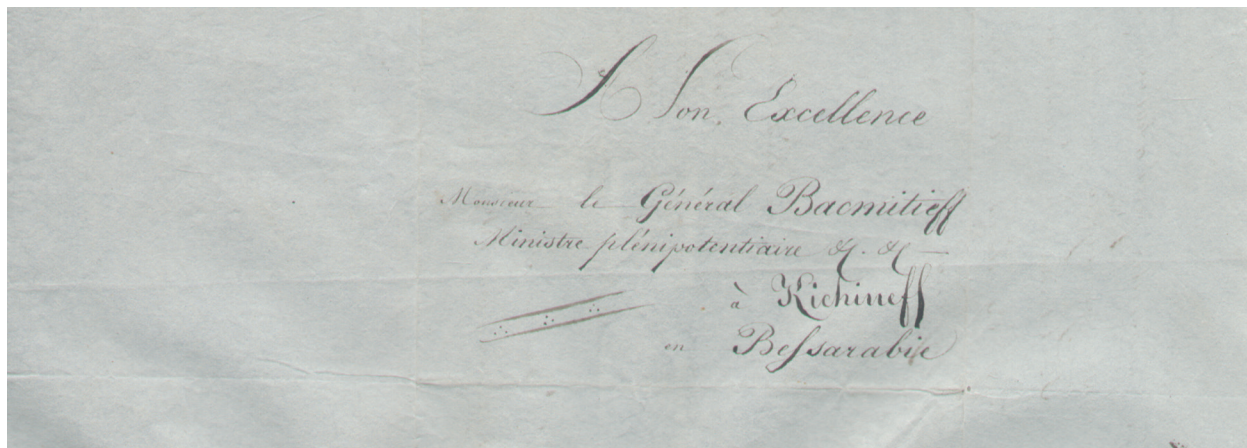 A Son Excellence
Monsieur le Général Bacmitieff
Ministre plénipotentiaire &. &
à Kichineff
en Beſsarabie